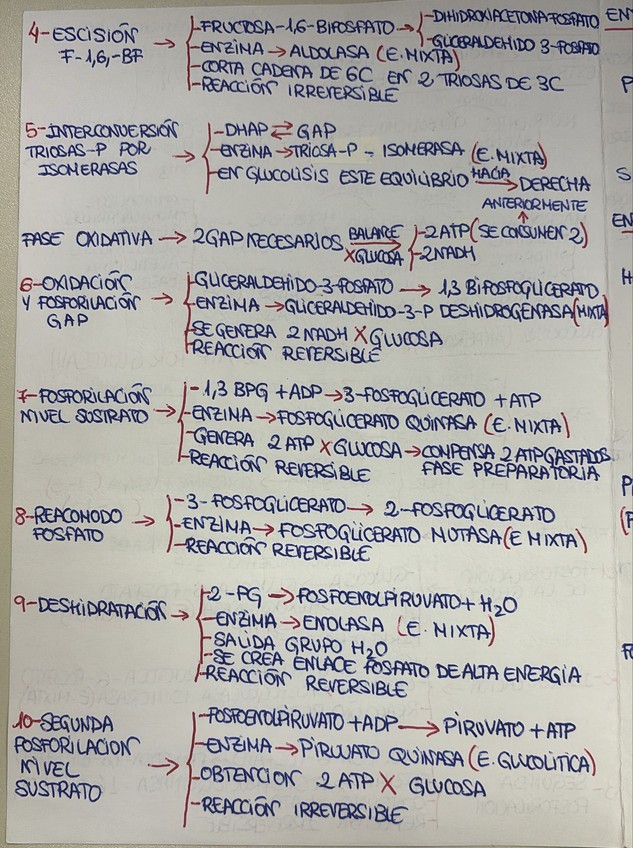 4-ESCISIÓN F-1,6,-BF → -FRUCTOSA-1,6-BIFOSFATO → -DIHIDROXIACETONA FOSFATO
-GLICERALDEHIDO 3-FOSFATO
-ENZIMA → ALDOLASA (E. MIXTA)
-CORTA CADENA DE 6C EN 2 TRIOSAS DE 3C
-REACCIÓN IRREVERSIBLE
5-INTERCONVERSIÓN TRIOSAS-P POR ISOMERASAS → -DHAP ⇄ GAP
-ENZIMA → TRIOSA-P - ISOMERASA (E. MIXTA)
-EN GLUCOLISIS ESTE EQUILIBRIO HACIA → DERECHA
ANTERIORMENTE
↑
FASE OXIDATIVA → 2GAP NECESARIOS BALANCE X GLUCOSA → -2ATP (SE CONSUMEN 2)
-2NADH
6-OXIDACIÓN Y FOSFORILACIÓN GAP → -GLICERALDEHIDO-3-FOSFATO → 1,3 BIFOSFOGLICERATO
-ENZIMA → GLICERALDEHIDO-3-P DESHIDROGENASA (MIXTA)
-SE GENERA 2 NADH X GLUCOSA
-REACCIÓN REVERSIBLE
7-FOSFORILACIÓN NIVEL SUSTRATO → -1,3 BPG + ADP → 3-FOSFOGLICERATO + ATP
-ENZIMA → FOSFOGLICERATO QUINASA (E. MIXTA)
-GENERA 2 ATP X GLUCOSA → COMPENSA 2 ATP GASTADOS
FASE PREPARATORIA
-REACCIÓN REVERSIBLE
8-REACOMODO FOSFATO → -3-FOSFOGLICERATO → 2-FOSFOGLICERATO
-ENZIMA → FOSFOGLICERATO MUTASA (E MIXTA)
-REACCIÓN REVERSIBLE
9-DESHIDRATACIÓN → -2-PG → FOSFOENOLPIRUVATO + H2O
-ENZIMA → ENOLASA (E. MIXTA)
-SALIDA GRUPO H2O
-SE CREA ENLACE FOSFATO DE ALTA ENERGÍA
-REACCIÓN REVERSIBLE
10-SEGUNDA FOSFORILACION NIVEL SUSTRATO → -FOSFOENOLPIRUVATO + ADP → PIRUVATO + ATP
-ENZIMA → PIRUVATO QUINASA (E. GLUCOLITICA)
-OBTENCION 2 ATP X GLUCOSA
-REACCIÓN IRREVERSIBLE